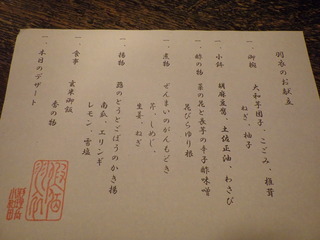 羽衣のお献立
一、御椀　大和芋団子、こごみ、椎茸
ねぎ、柚子
一、小鉢　胡麻豆腐、土佐正油、わさび
一、酢の物　菜の花と長芋の辛子酢味噌
花びらゆり根
一、煮物　ぜんまいのがんもどき
芹、しめじ、
生姜、ねぎ
一、揚物　蕗のとうとごぼうのかき揚
南瓜、エリンギ
レモン、雪塩
一、食事　玄米御飯
香の物
一、本日のデザート